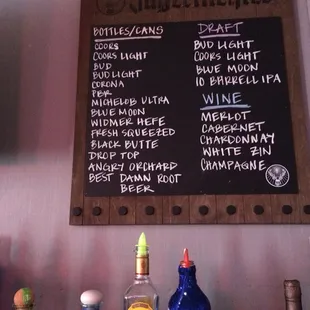 Jägermeister
BOTTLES/CANS
COORS
COORS LIGHT
BUD
BUD LIGHT
CORONA
PBR
MICHELOB ULTRA
BLUE MOON
WIDMER HEFE
FRESH SQUEEZED
BLACK BUTTE
DROP TOP
ANGRY ORCHARD
BEST DAMN ROOT
BEER
DRAFT
BUD LIGHT
COORS LIGHT
BLUE MOON
10 BARRELL IPA
WINE
MERLOT
CABERNET
CHARDONNAY
WHITE ZIN
CHAMPAGNE